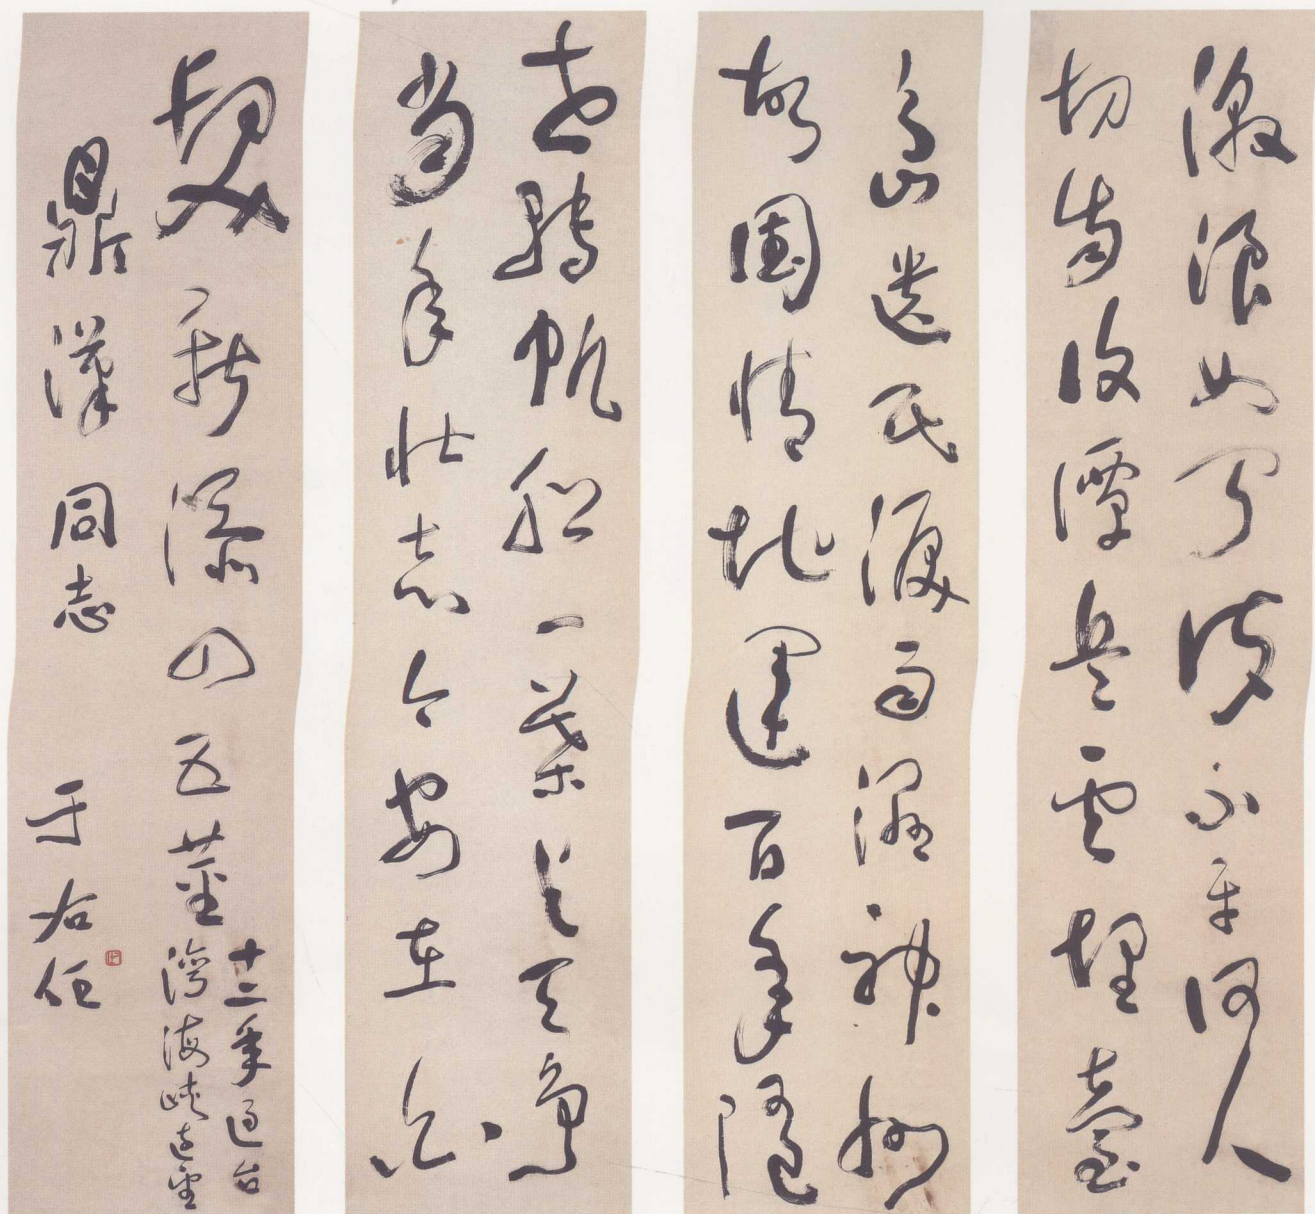 激浪如聞訴不平何人
切齒復譚兵雲埋臺
島遺民淚雨濕神州
故國情地運百年隨
世轉帆船一葉與天爭
當年壯志今安在白
髮新添四五莖
十二年過台
灣海峽遠望
鼎漢同志 于右任